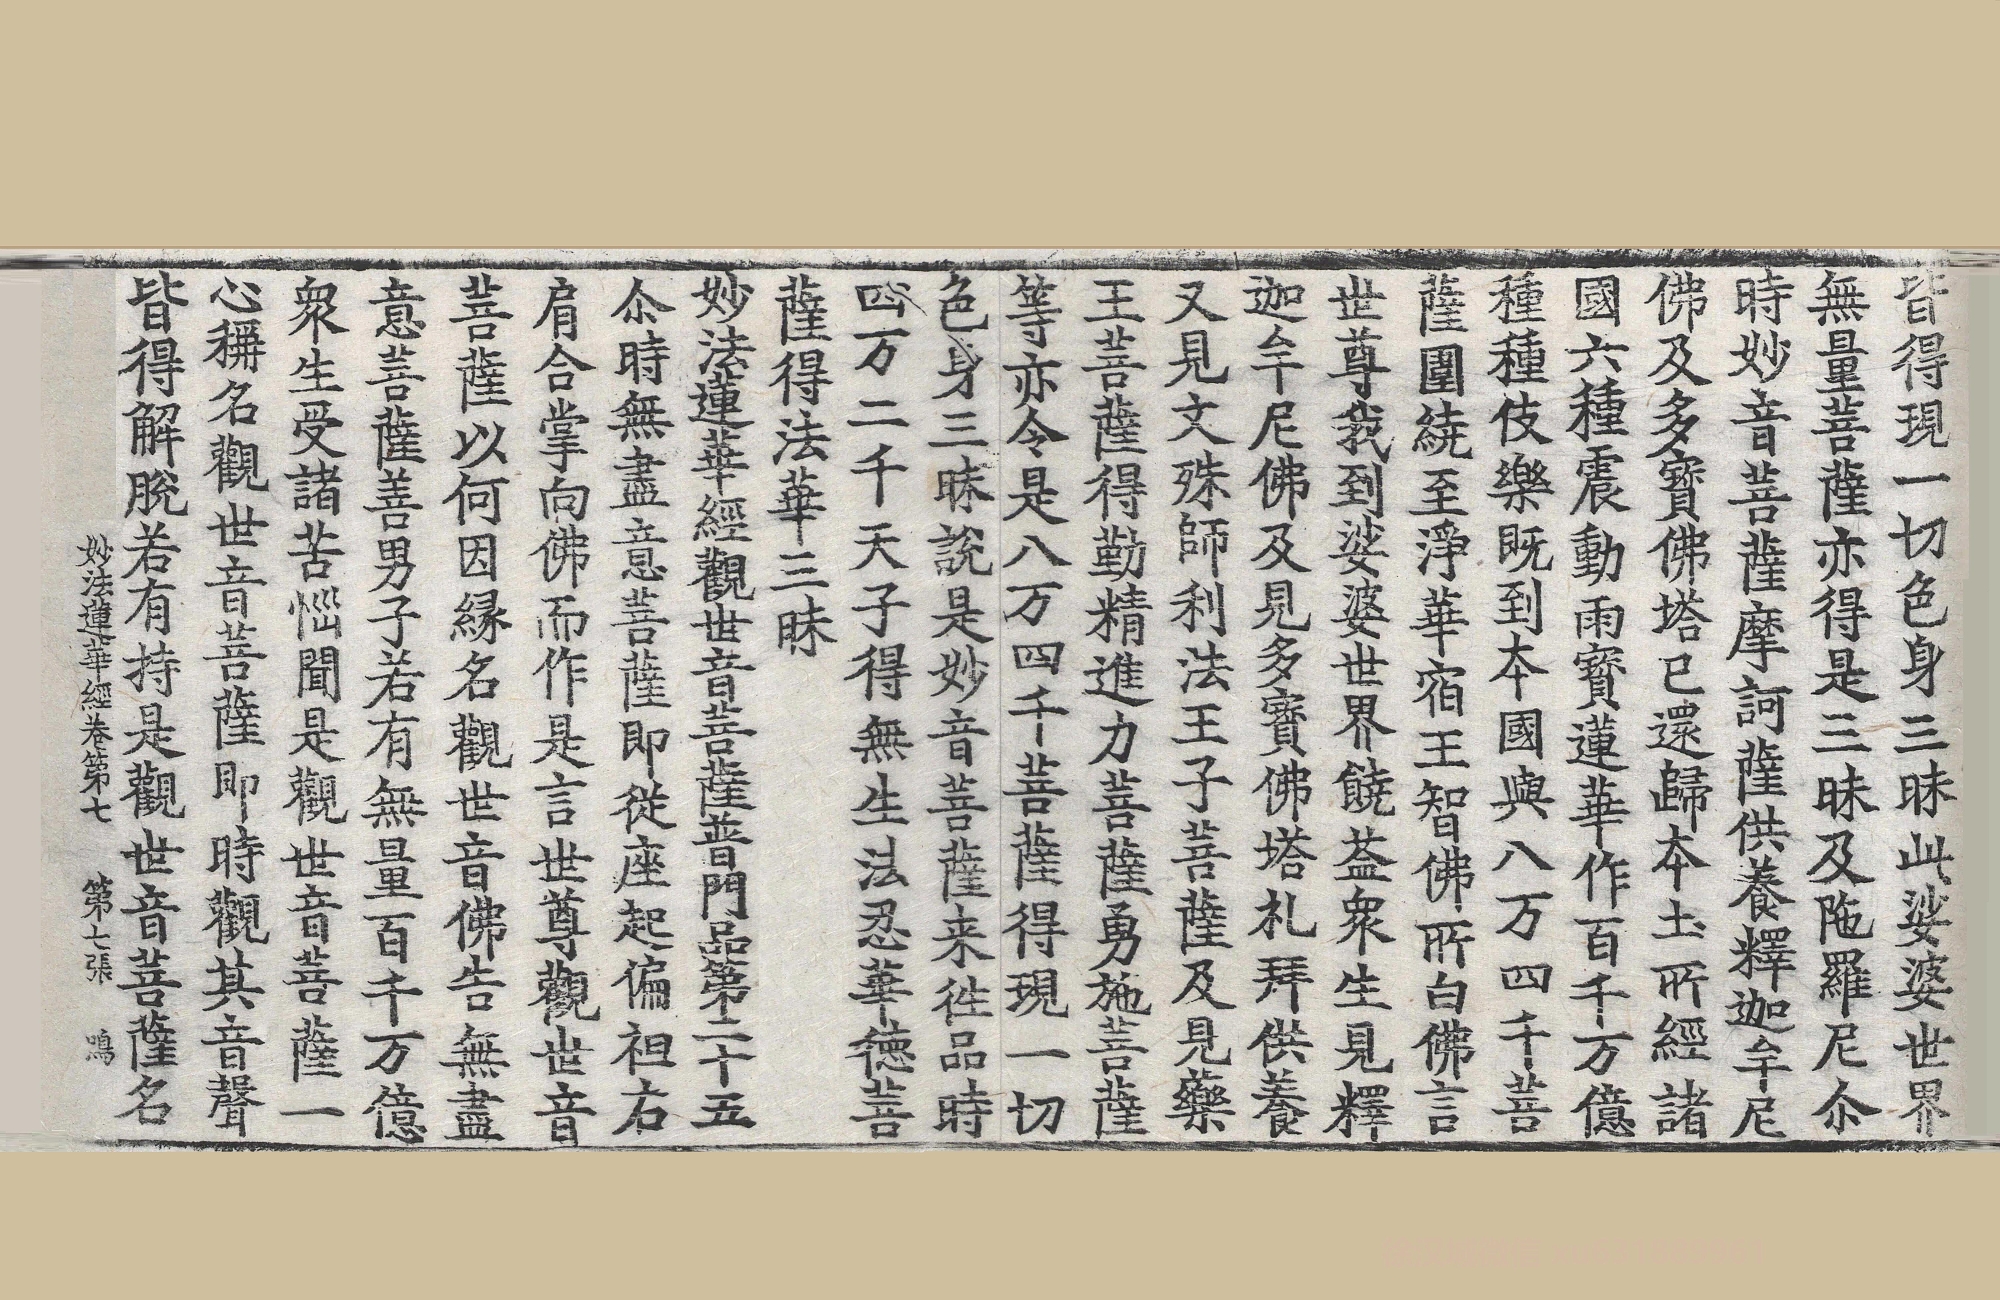 皆得現一切色身三昧此娑婆世界
無量菩薩亦得是三昧及陁羅尼尒
時妙音菩薩摩訶薩供養釋迦牟尼
佛及多寶佛塔已還歸本土所經諸
國六種震動雨寶蓮華作百千万億
種種伎樂既到本國與八万四千菩
薩圍繞至淨華宿王智佛所白佛言
世尊我到娑婆世界饒益衆生見釋
迦牟尼佛及見多寶佛塔礼拜供養
又見文殊師利法王子菩薩及見藥
王菩薩得勤精進力菩薩勇施菩薩
等亦令是八万四千菩薩得現一切
色身三昧說是妙音菩薩来徃品時
四万二千天子得無生法忍華德菩
薩得法華三昧
妙法蓮華經觀世音菩薩普門品第二十五
尒時無盡意菩薩即從座起偏袒右
肩合掌向佛而作是言世尊觀世音
菩薩以何因緣名觀世音佛告無盡
意菩薩善男子若有無量百千万億
衆生受諸苦惱聞是觀世音菩薩一
心稱名觀世音菩薩即時觀其音聲
皆得解脫若有持是觀世音菩薩名
妙法蓮華經卷第七 第七張 鳴